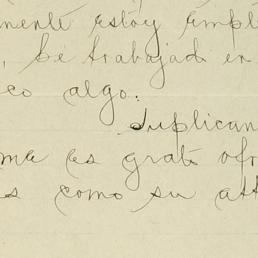 mente estoy empl
, he trabajad en
co algo.
Suplican
ma es grato ofr
s como su att